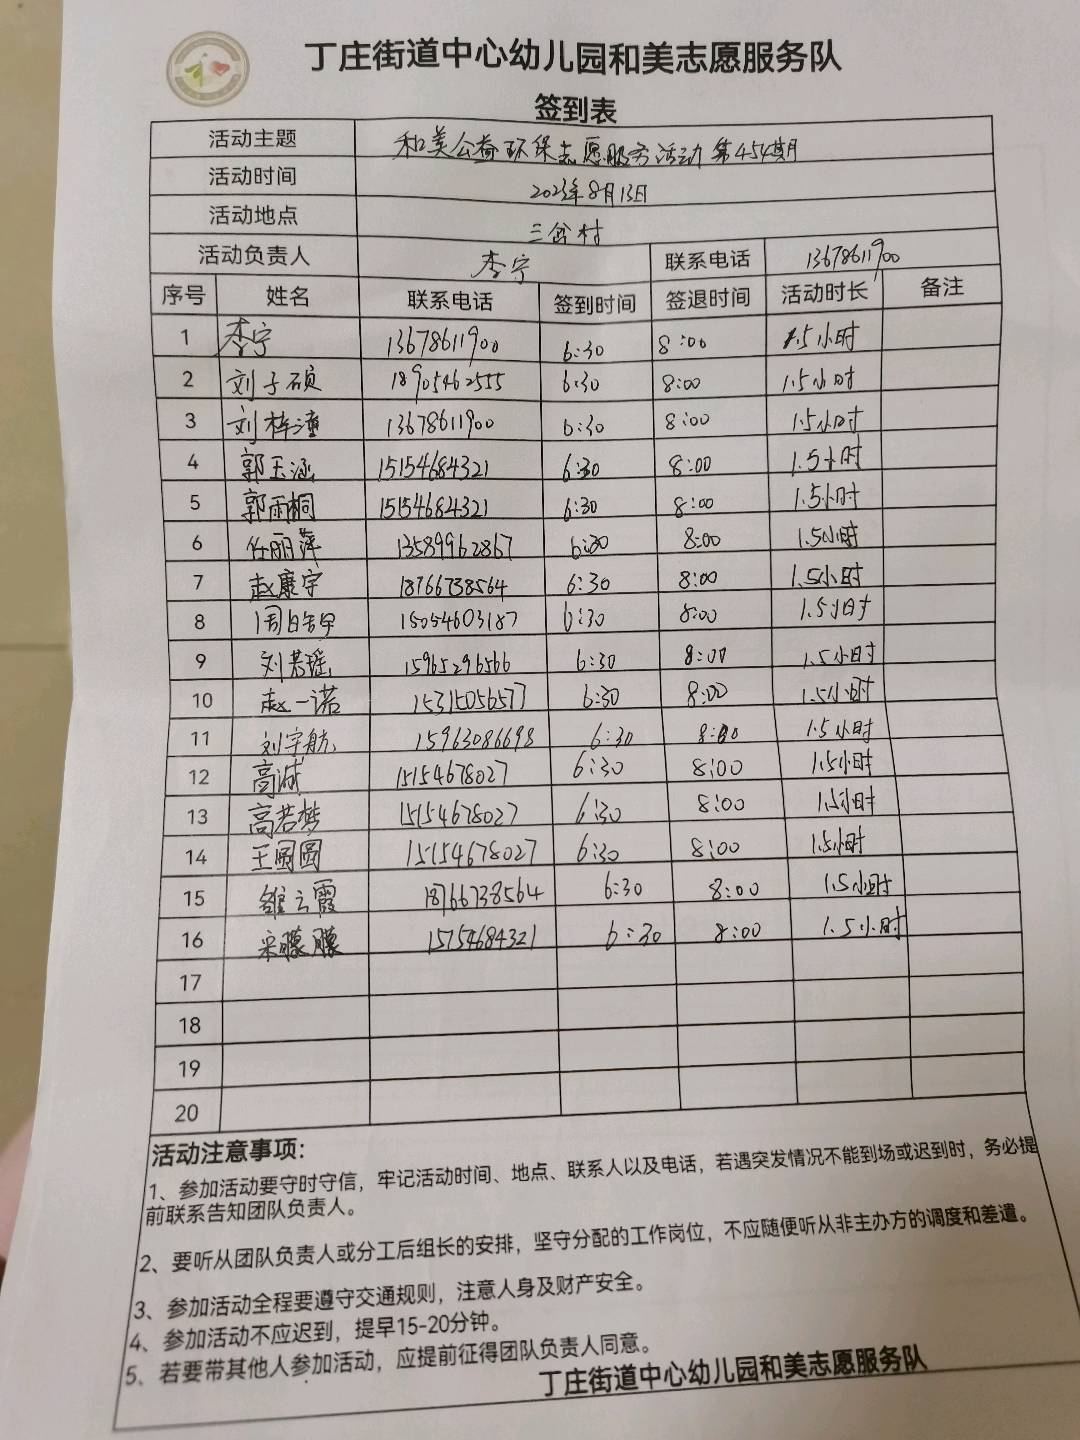 丁庄街道中心幼儿园和美志愿服务队
签到表
活动主题 和美公益环保志愿服务活动第454期
活动时间 2023年8月13日
活动地点 三岔村
活动负责人 李宁 联系电话 13678611900
序号 姓名 联系电话 签到时间 签退时间 活动时长 备注
1 李宁 13678611900 6:30 8:00 1.5小时
2 刘子硕 18905462555 6:30 8:00 1.5小时
3 刘梓潼 13678611900 6:30 8:00 1.5小时
4 郭玉涵 15154684321 6:30 8:00 1.5小时
5 郭雨桐 15154684321 6:30 8:00 1.5小时
6 任丽萍 13589962867 6:30 8:00 1.5小时
7 赵康宇 18766738564 6:30 8:00 1.5小时
8 周皓宇 15054603187 6:30 8:00 1.5小时
9 刘若瑶 15965296566 6:30 8:00 1.5小时
10 赵一诺 15315056577 6:30 8:00 1.5小时
11 刘宇航 15963086698 6:30 8:00 1.5小时
12 高诚 15154678027 6:30 8:00 1.5小时
13 高若梦 15154678027 6:30 8:00 1.5小时
14 王圆圆 15154678027 6:30 8:00 1.5小时
15 云霞 18766738564 6:30 8:00 1.5小时
16 朦朦 15154684321 6:30 8:00 1.5小时
17
18
19
20
活动注意事项：
1、参加活动要守时守信，牢记活动时间、地点、联系人以及电话，若遇突发情况不能到场或迟到时，务必提
前联系告知团队负责人。
2、要听从团队负责人或分工后组长的安排，坚守分配的工作岗位，不应随便听从非主办方的调度和差遣。
3、参加活动全程要遵守交通规则，注意人身及财产安全。
4、参加活动不应迟到，提早15-20分钟。
5、若要带其他人参加活动，应提前征得团队负责人同意。
丁庄街道中心幼儿园和美志愿服务队